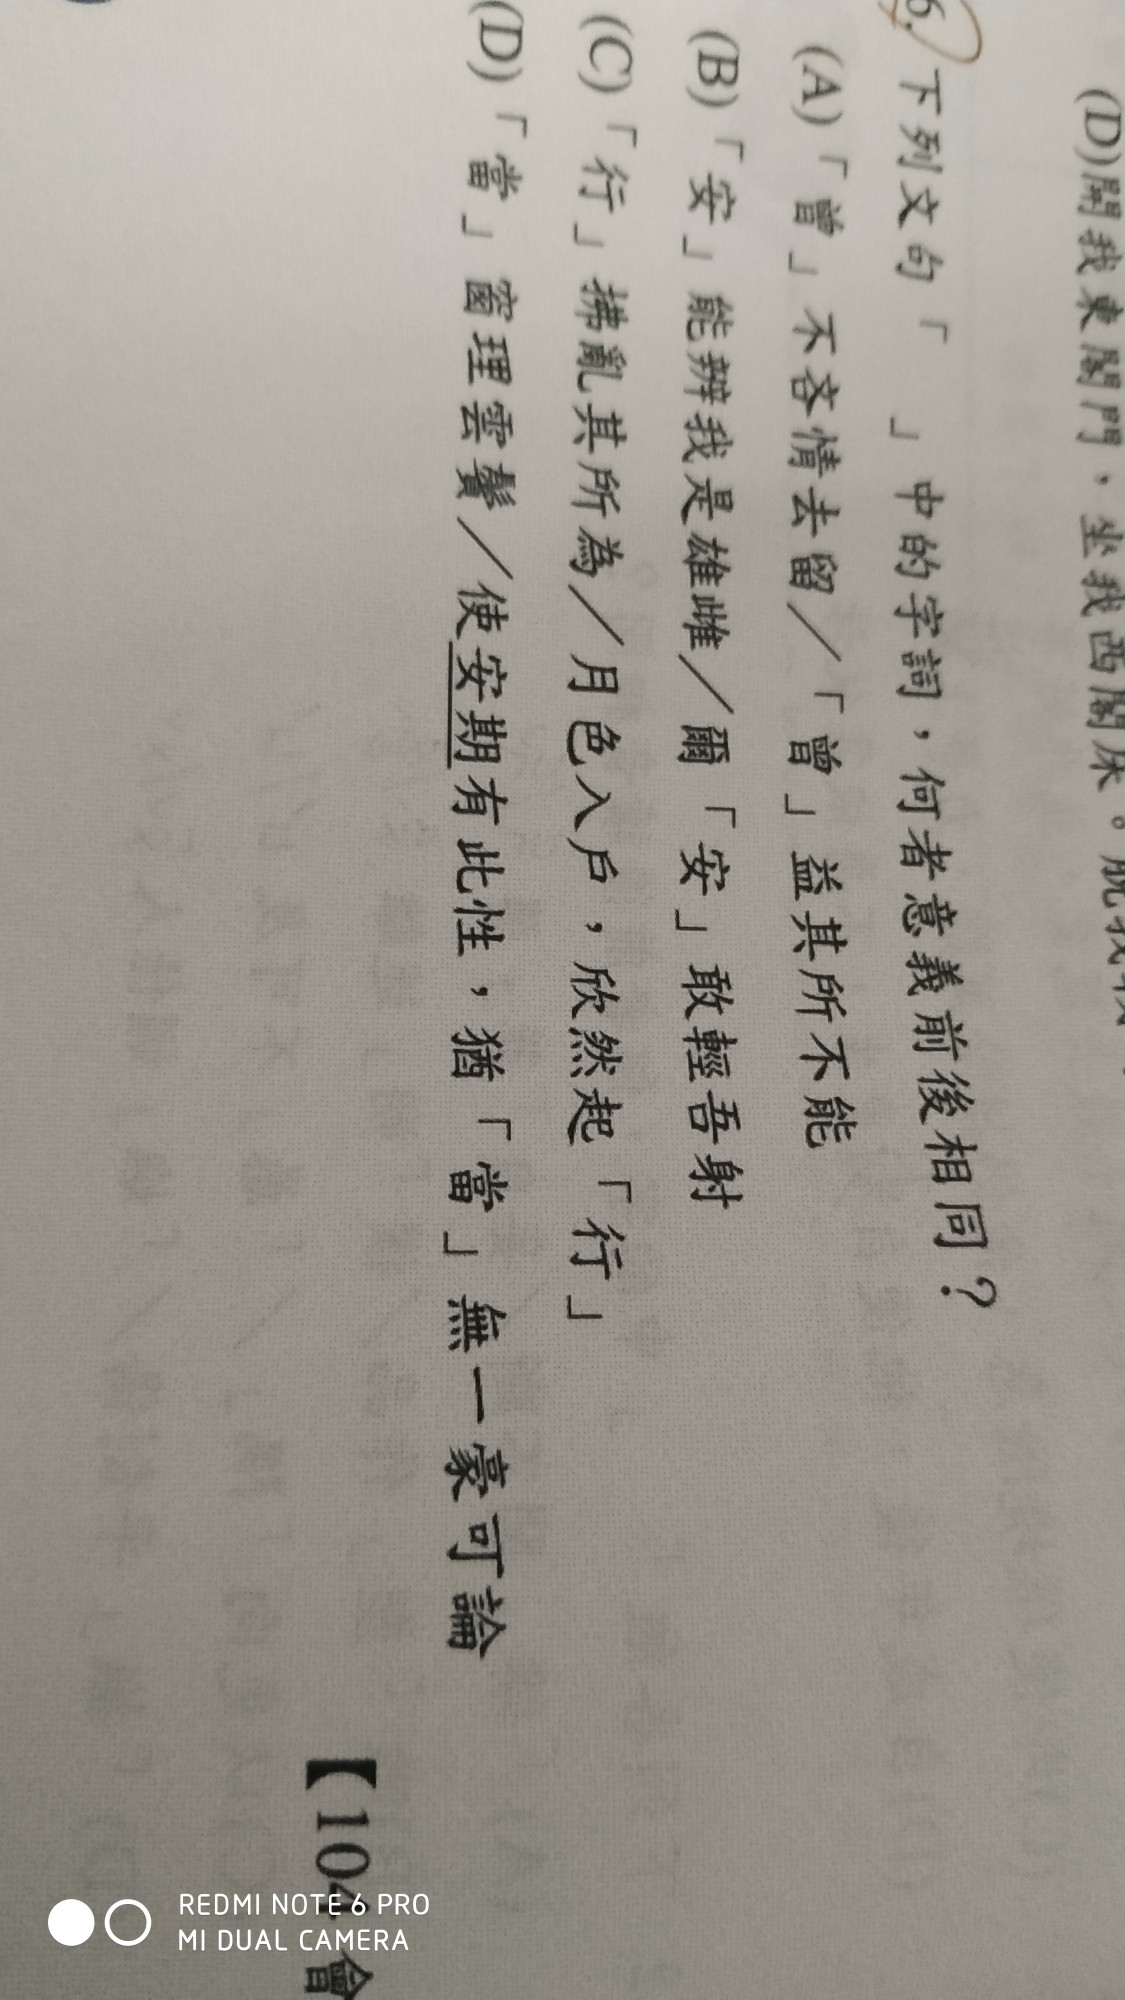 (D)開我東閣門、坐我西閣床。脫我
6.下列文句「　」中的字詞，何者意義前後相同？
(A)「曾」不吝情去留／「曾」益其所不能
(B)「安」能辨我是雄雌／爾「安」敢輕吾射
(C)「行」拂亂其所為／月色入戶，欣然起「行」
(D)「當」窗理雲鬢／使安期有此性，猶「當」無一豪可論
【104 會
REDMI NOTE 6 PRO
MI DUAL CAMERA